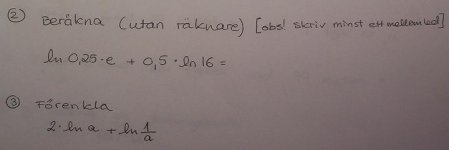 ② Beräkna (utan räknare) [obs! skriv minst ett mellanled]
ln 0,25·e + 0,5·ln 16 =
③ Förenkla
2·ln a + ln 1/a